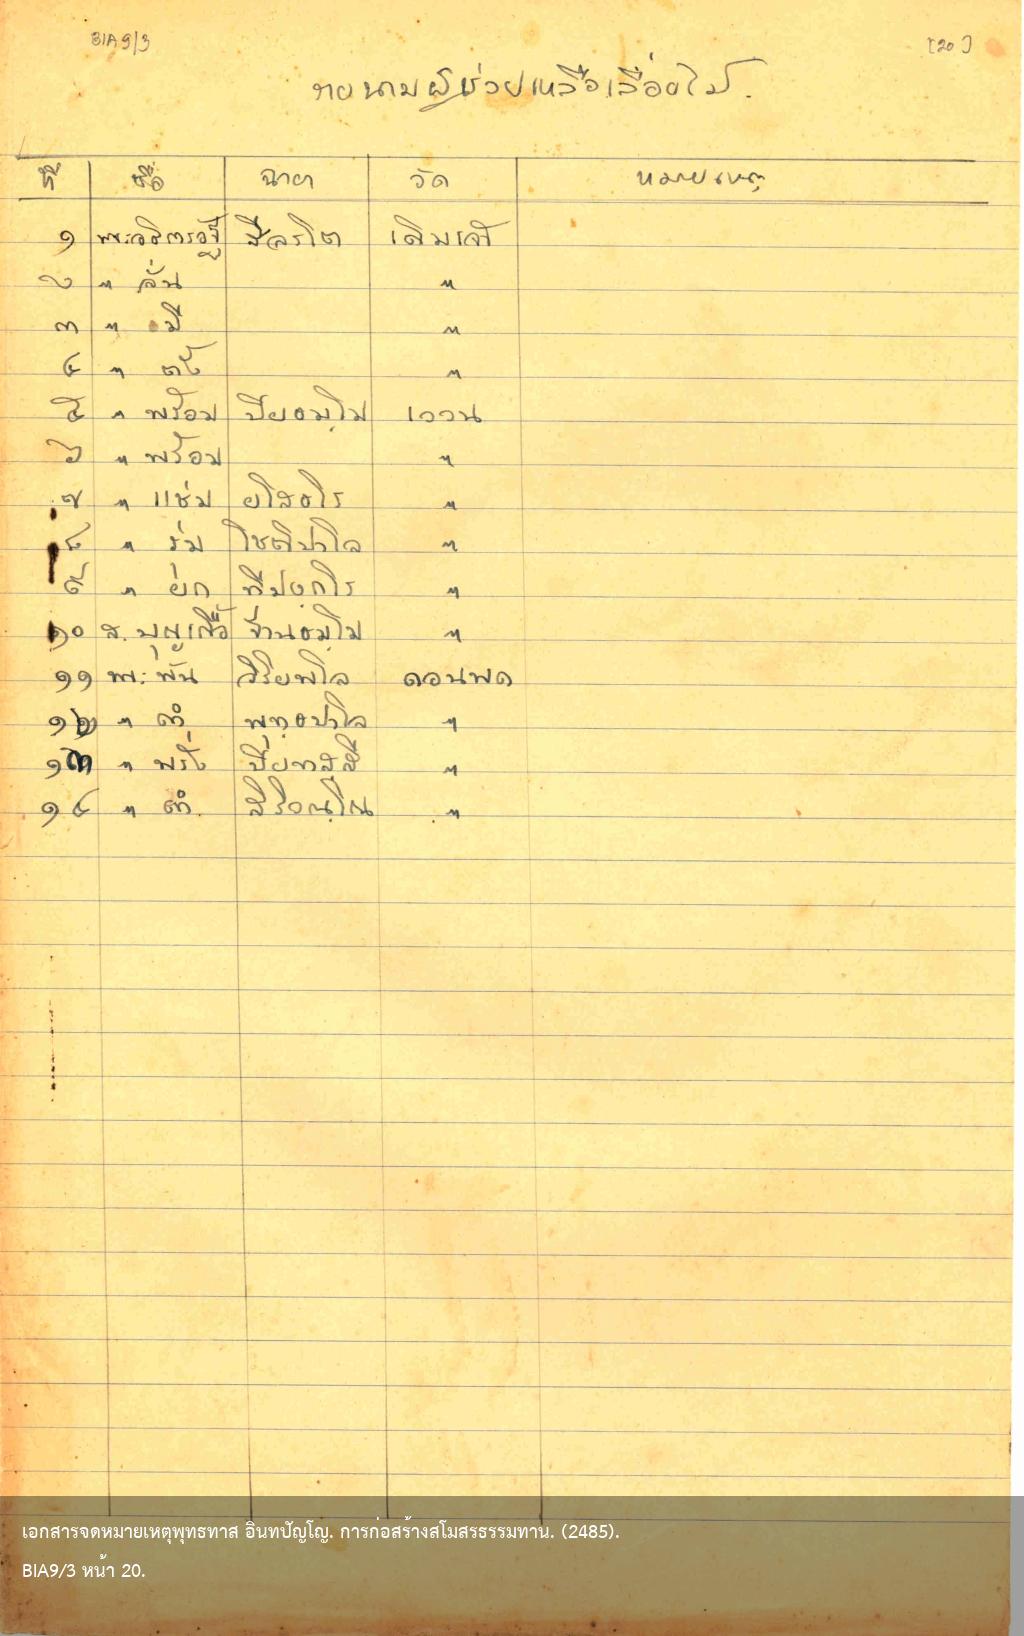 BIA9/3 [20]
นามผู้ช่วยเหลือเลื่อยไม้.
ที่ ชื่อ ฉายา วัด หมายเหตุ
๑ สีลรโต
๒ " ลั่น "
๓ " มี "
๔ " "
๕ " พร้อม ปิยธมฺโม เววน
๖ " พร้อม "
๗ " แช่ม ยโสธโร "
๘ " ร่ม โชติปาโล "
๙ " ยก ทีปงฺกโร "
๑๐ ส. "
๑๑ พ. พัน สิริยพโล ดอนพด
๑๒ " ดำ พุทธปาโล "
๑๓ " พริ้ง ปิยทสฺสี "
๑๔ " ดำ "
เอกสารจดหมายเหตุพุทธทาส อินทปัญโญ. การก่อสร้างสโมสรธรรมทาน. (2485).
BIA9/3 หน้า 20.